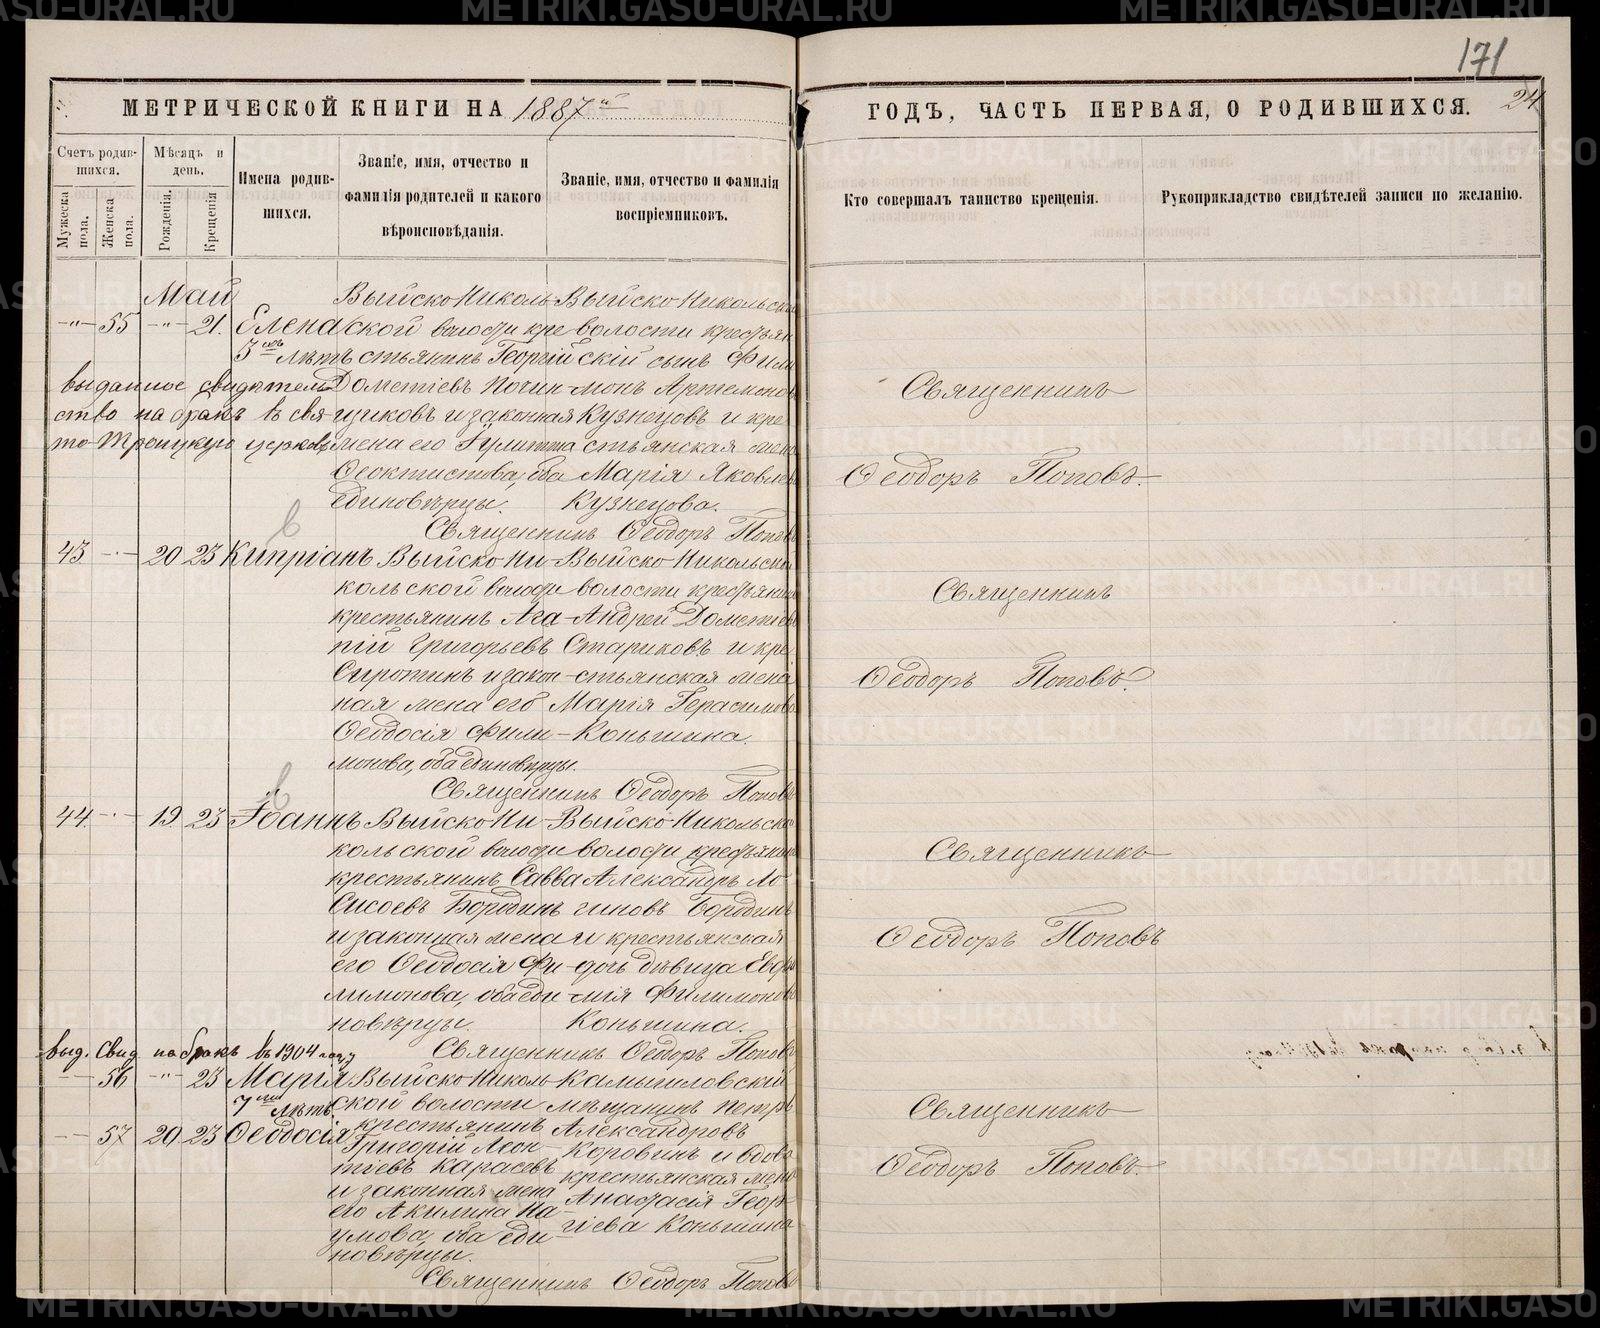 171
24
МЕТРИЧЕСКОЙ КНИГИ НА 1887й
ГОДЪ, ЧАСТЬ ПЕРВАЯ, О РОДИВШИХСЯ.
Счетъ родив-
шихся.
Мужеска пола.
Женска пола.
Мѣсяцъ и
день.
Рожденія.
Крещенія
Имена родив-
шихся.
Званіе, имя, отчество и
фамилія родителей и какого
вѣроисповѣданія.
Званіе, имя, отчество и фамилія
воспріемниковъ.
Кто совершалъ таинство крещенія.
Рукоприкладство свидѣтелей записи по желанію.
Май
—"— 55 —"— 21. Елена
3хъ лѣтъ
выданное свидѣтель-
ство на бракъ въ свя-
то-Троицкую церковь
Выйско Николь-
ской волости кре-
стьянинъ Георгій
Дометіевъ Почин-
щиковъ и законная
жена его Іулитта
Феоктистова, оба
единовѣрцы.
Выйско Никольской
волости крестьян-
скій сынъ Фили-
монъ Артемоновъ
Кузнецовъ и кре-
стьянская жена
Марія Яковлева
Кузнецова.
Священникъ Ѳеодоръ Поповъ
Священникъ
Ѳеодоръ Поповъ.
43 —·— 20 23 Кипріанъ
Выйско Ни-
кольской волости
крестьянинъ Ага-
пій Григорьевъ
Сиротинъ и закон-
ная жена его
Ѳеодосія Фили-
монова, оба единовѣрцы.
Выйско-Никольской
волости крестьянинъ
Андрей Дометіевъ
Стариковъ и кре-
стьянская жена
Марія Герасимова
Коньшина.
Священникъ Ѳеодоръ Поповъ
Священникъ
Ѳеодоръ Поповъ.
44 —·— 19 23 Іоаннъ
Выйско Ни-
кольской волости
крестьянинъ Савва
Сисоевъ Бородинъ
и законная жена
его Ѳеодосія Фи-
лимонова, оба еди-
новѣрцы.
Выйско-Никольской
волости крестьянинъ
Александръ Ло-
гиновъ Бородинъ
и крестьянская
дочь дѣвица
Филимонова
Коньшина.
Священникъ Ѳеодоръ Поповъ
Священникъ
Ѳеодоръ Поповъ
выд. свид на бракъ въ 1904 году
—— 56 —"— 23 Марія
7ми лѣтъ
—— 57 20 23 Ѳеодосія
Выйско Николь-
ской волости
крестьянинъ
Григорій Леон-
тіевъ Карасевъ
и законная жена
его Акилина На-
умова, оба еди-
новѣрцы.
Камышловскій
мѣщанинъ Петръ
Александровъ
Коровинъ и вдова
крестьянская жена
Анастасія Геор-
гіева Коньшина
Священникъ Ѳеодоръ Поповъ
Священникъ
Ѳеодоръ Поповъ.
METRIKI.GASO-URAL.RU